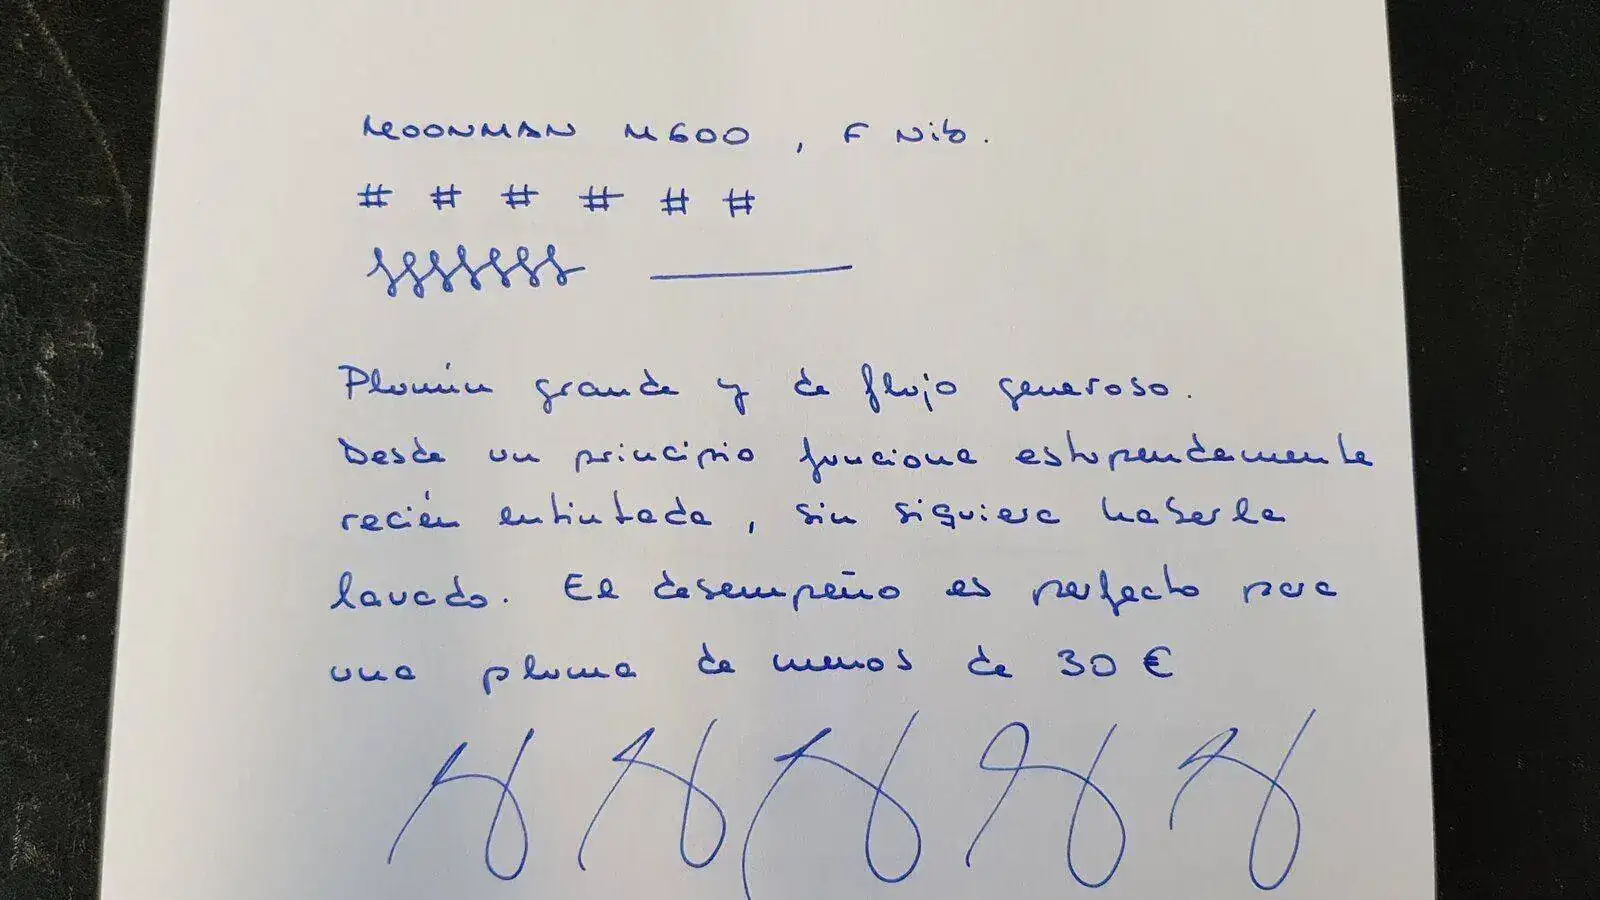 MOONMAN M600, F Nib.
# # # # # #
Plumín grande y de flujo generoso.
Desde un principio funciona estupendamente
recién entintada, sin siquiera haberla
lavado. El desempeño es perfecto para
una pluma de menos de 30 €